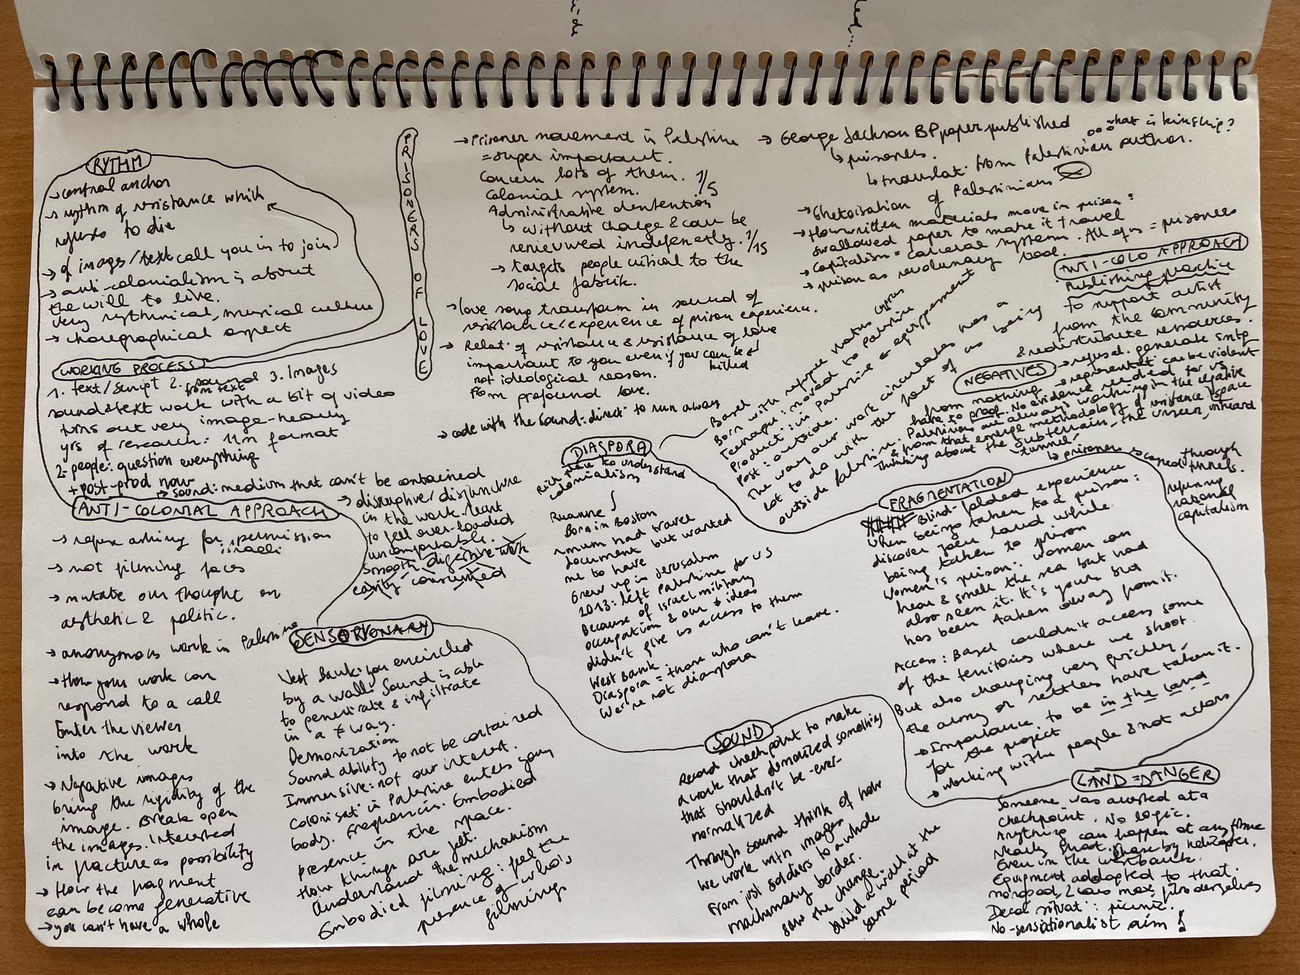 RYTHM
→ central anchor
→ rythm of resistance which
refuses to die
→ of images/texts call you in to join
→ anti-colonialism is about
the will to live.
very rythmical, musical culture
→ choregraphical aspect
WORKING PROCESS
1. text/script 2. sound 3. Images
from text
sound & text work with a bit of video
turns out very image-heavy
yrs of research: llm format
2 people: question everything
+ post-prod now
→ sound: medium that can't be contained
ANTI-COLONIAL APPROACH
→ refuse asking for permission
israeli
→ not filming faces
→ mutate our thought on
aesthetic & politic.
→ anonymous work in Palestine
→ How your work can
respond to a call
Enter the viewer
into the work
→ Negative images
bring the rigidity of the
image. Break open
the images. Interested
in fracture as possibility
→ How the fragment
can become generative
→ you can't have a whole
PRISONERS OF LOVE
→ Prisoner movement in Palestine
= super important.
Concern lots of them. 1/5
Colonial system.
Administrative detention
↳ without charge & can be
renewed indefinitely. 1/15
→ targets people critical to the
social fabric.
→ love song transform in sound of
resistance/experience of prison experience.
→ Relat° of resistance & resistance of love
important to you even if you can be killed
not ideological reason.
From profound love.
→ code with the sound: direct° to run away
→ disruptive/disjuncture
in the work. Want
to feel over-loaded
uncomfortable.
Smooth digestive work
easily consumed
SENSORIONARY
West Bank: you encircled
by a wall. Sound is able
to penetrate & infiltrate
in a ≠ way.
Demonization
Sound ability to not be contained
Immersive: not our interest.
Colonisat° in Palestine enters your
body. Frequencies. Embodied
presence in the space.
How things are felt.
Understand the mechanism
Embodied filming: feel the
presence of who's
filming
→ George Jackson BP paper published
↳ prisoners.
↳ translat° from Palestinian author.
what is kinship?
→ Ghetoisation of Palestinians
→ How written materials move in prison =
swallowed paper to make it travel
→ Capitalism = carceral system. All of us = prisoners
→ prison as revolutionary tool.
ANTI-COLO APPROACH
Publishing practice
to support artist
from the community
& redistribute resources.
DIASPORA
colonialism
Ruanne
Born in Boston
mum had travel
document but wanted
me to have US
Grew up in Jerusalem
2013: left Palestine for US
Because of Israel military
occupation & our ≠ ideas
didn't give us access to them
West Bank
Diaspora = those who can't leave.
We're not diaspora
Born with refugee mother Cyprus
Teenage: moved to Palestine
Product°: in Palestine & egyppement
Post: outside.
The way our work circulates has a
lot to do with the fact of us being
outside Palestine.
NEGATIVES
→ refusal. generate smtg
from nothing → representat° can be violent
have to proof. No evidence needed for us
Palestinian are always working in the negative
& from that emerge methodology of resistance space
Thinking about the subterrain, the unseen, inward
tunnel
↳ prisoner → escaped through tunnels.
refusing
racial
capitalism
FRAGMENTATION
Blind-folded experience
when being taken to a prison:
discover your land while
being taken to prison
Women's prison: women can
hear & smell the sea but had
also seen it. It's yours but
has been taken away from it.
Access: Basel couldn't access some
of the territories where we shoot.
But also changing very quickly,
the army or settlers have taken it.
→ Importance to be in the land
for the project
→ working with people & not actors
SOUND
Record checkpoint to make
a work that demonized something
that shouldn't be ever
normalized
Through sound think of how
we work with images
From just soldiers to a whole
machinnary border.
saw the change.
build a wall at the
same period
LAND = DANGER
Someone was arrested at a
checkpoint. No logic.
Anything can happen at any time
Nearly shoot by helicopter.
Even in the westbank.
Equipment adapted to that.
Decoy situat°: picnic.
No-sensationalist aim!